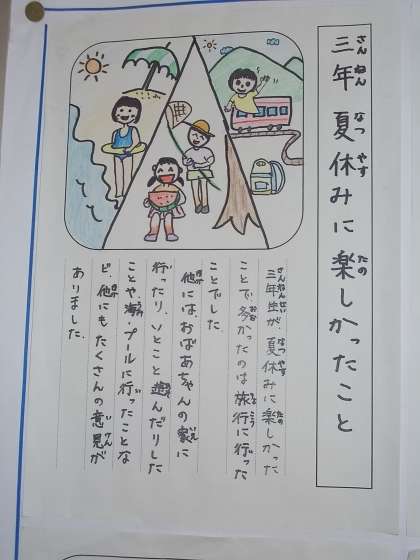 三年 夏休みに楽しかったこと
三年生が、夏休みに楽しかった
ことで、多かったのは旅行に行った
ことでした
他には、おばあちゃんの家に
行ったり、いとこと遊んだりした
ことや海・プールに行ったことな
ど、他にもたくさんの意見が
ありました。